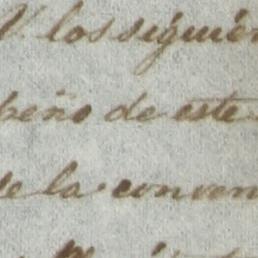 V. los siguien
peño de este
de la conven